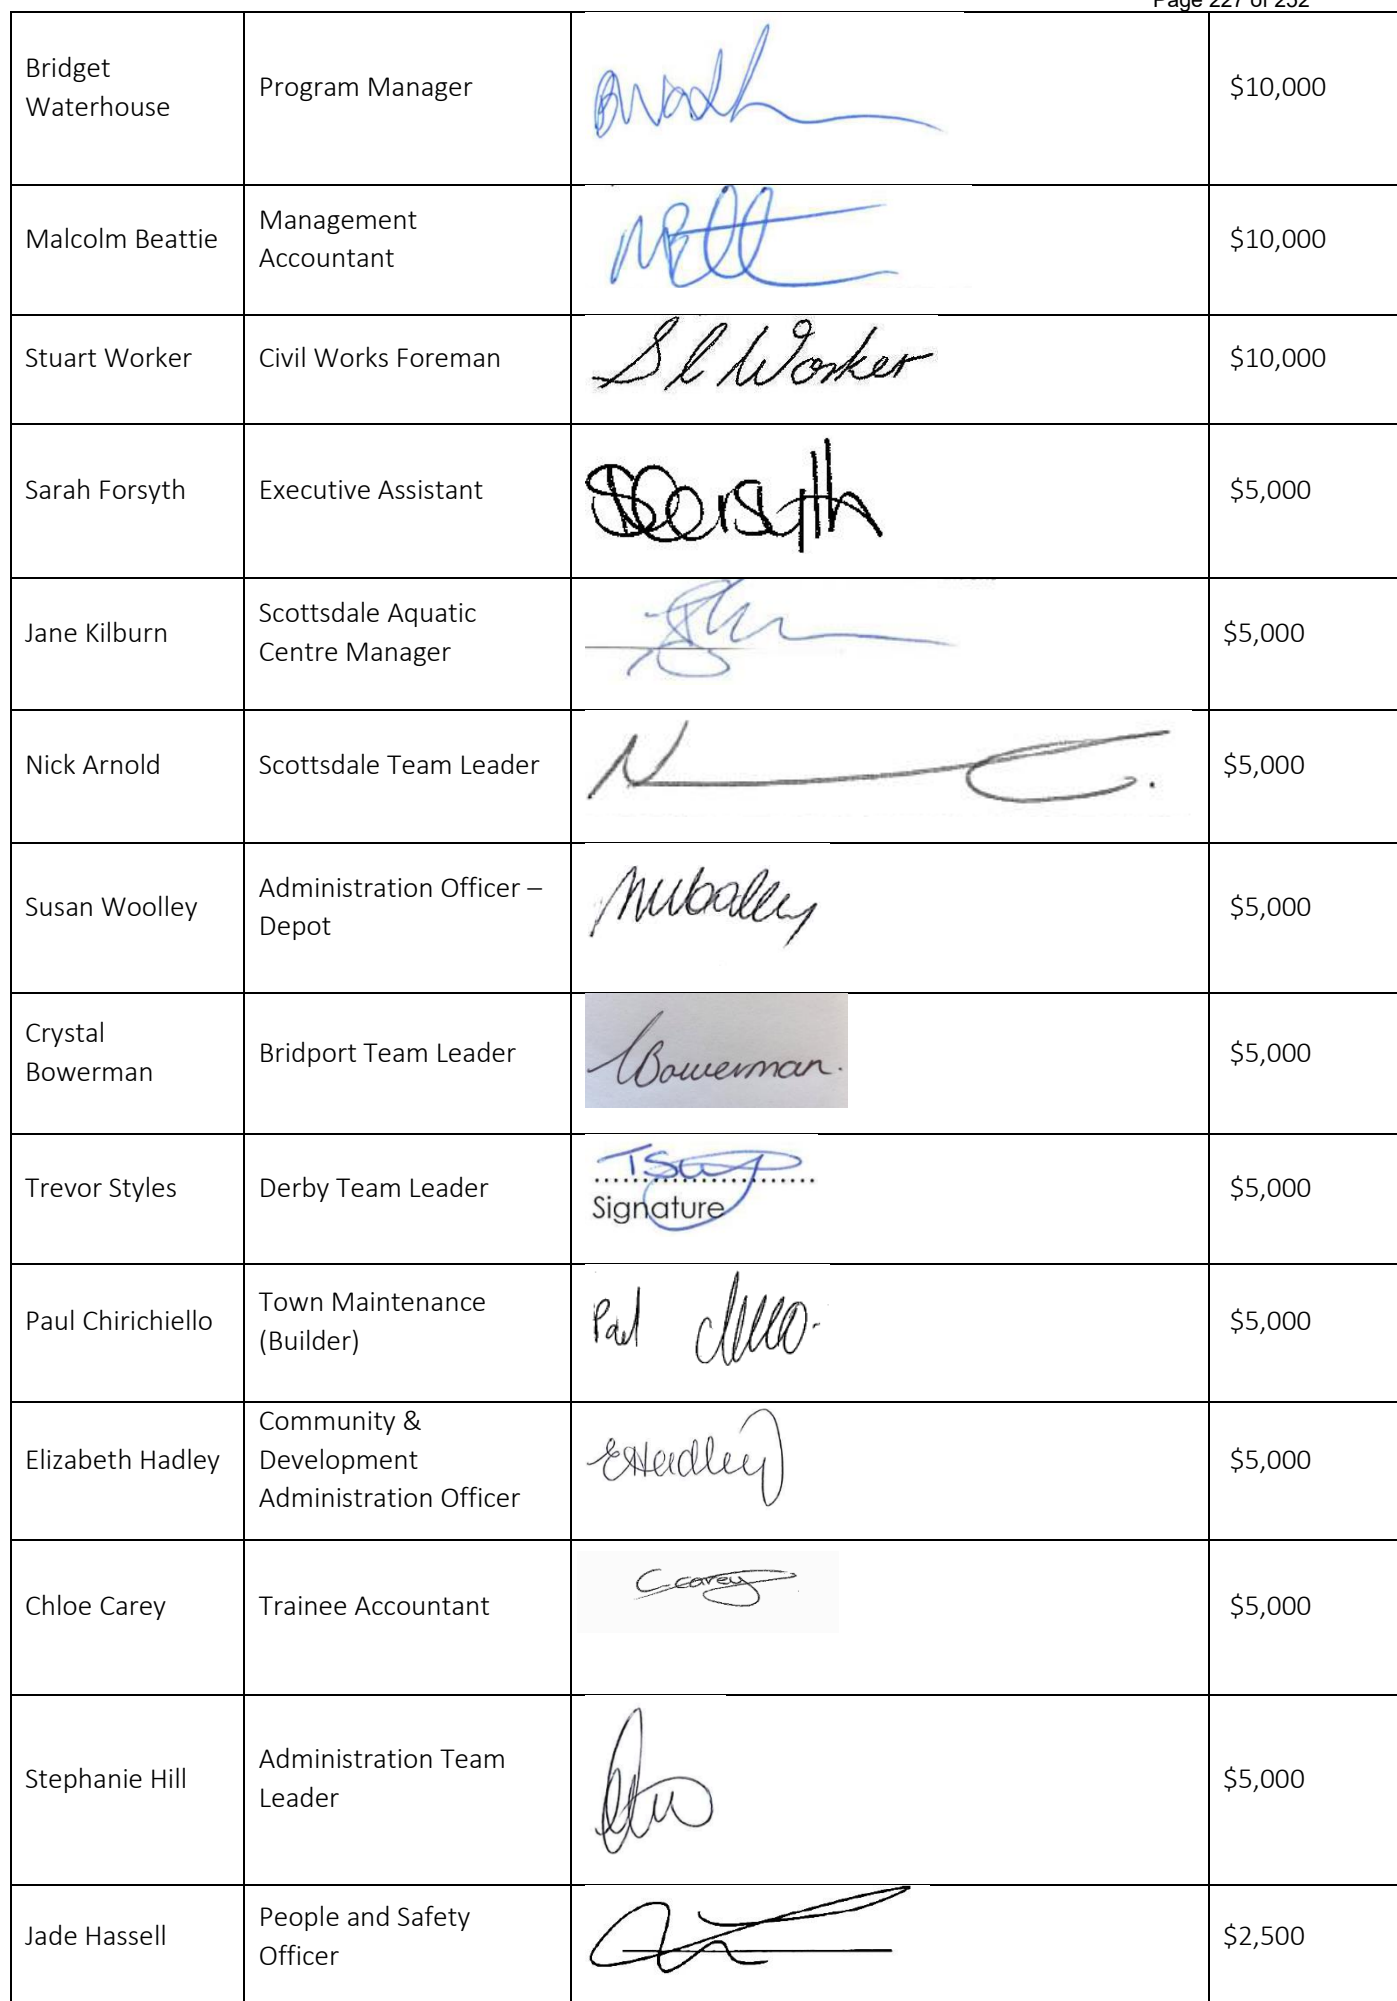 Page 227 of 252
Bridget
Waterhouse
Program Manager
$10,000
Malcolm Beattie
Management
Accountant
$10,000
Stuart Worker
Civil Works Foreman
S L Worker
$10,000
Sarah Forsyth
Executive Assistant
$5,000
Jane Kilburn
Scottsdale Aquatic
Centre Manager
$5,000
Nick Arnold
Scottsdale Team Leader
$5,000
Susan Woolley
Administration Officer –
Depot
$5,000
Crystal
Bowerman
Bridport Team Leader
CBowerman.
$5,000
Trevor Styles
Derby Team Leader
Signature
$5,000
Paul Chirichiello
Town Maintenance
(Builder)
Paul
$5,000
Elizabeth Hadley
Community &
Development
Administration Officer
EHadley
$5,000
Chloe Carey
Trainee Accountant
C Carey
$5,000
Stephanie Hill
Administration Team
Leader
$5,000
Jade Hassell
People and Safety
Officer
$2,500